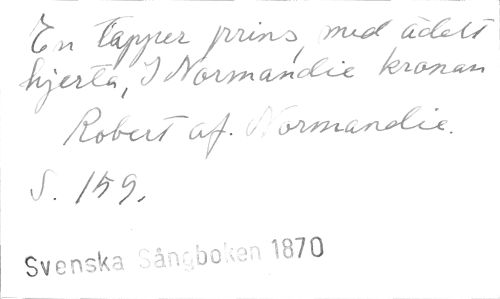 En tapper prins, med ädelt
hjerta, I Normandie kronan
Robert af. Normandie.
S. 159.
Svenska Sångboken 1870